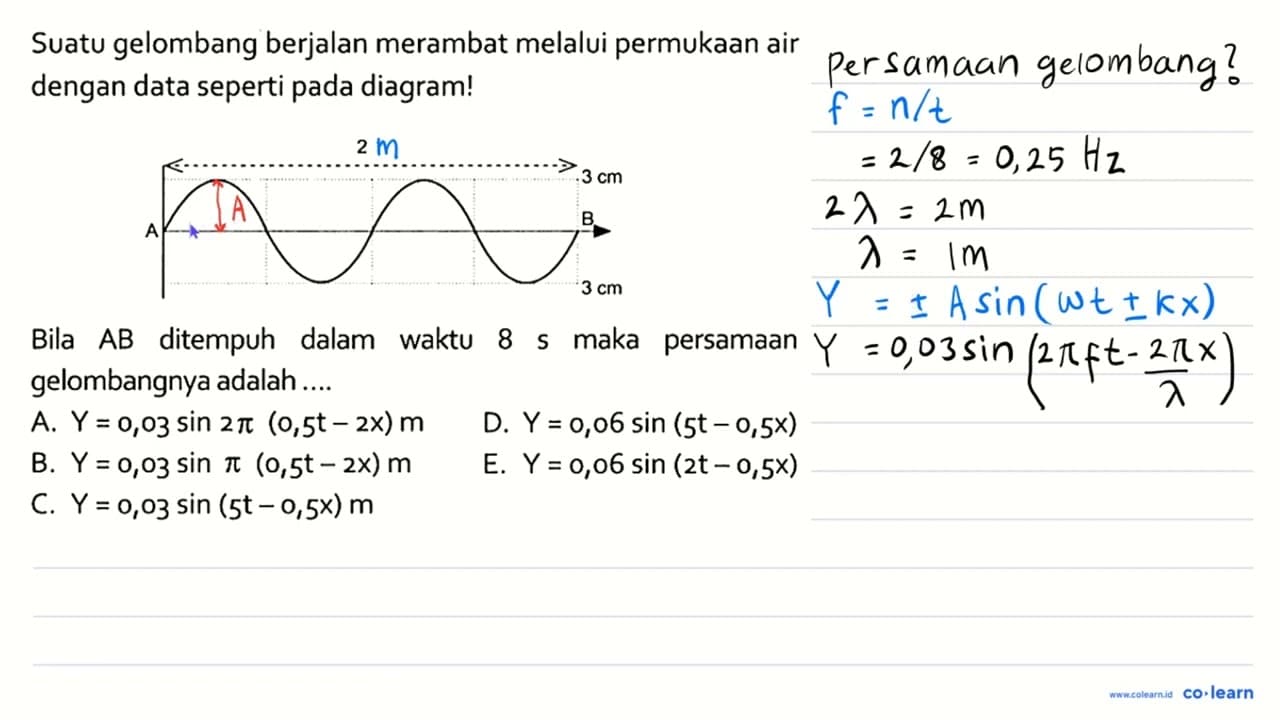 Suatu gelombang berjalan merambat melalui permukaan air
dengan data seperti pada diagram!
2 m
3 cm
A
A
B
3 cm
Bila AB ditempuh dalam waktu 8 s maka persamaan
gelombangnya adalah ....
A. Y = 0,03 sin 2π (0,5t – 2x) m
D. Y = 0,06 sin (5t – 0,5x)
B. Y = 0,03 sin π (0,5t – 2x) m
E. Y = 0,06 sin (2t – 0,5x)
C. Y = 0,03 sin (5t – 0,5x) m
Persamaan gelombang?
f = n/t
= 2/8 = 0,25 Hz
2λ = 2m
λ = 1m
Y = ± A sin (ωt ± kx)
Y = 0,03 sin (2πft - 2πx/λ)
www.colearn.id co·learn